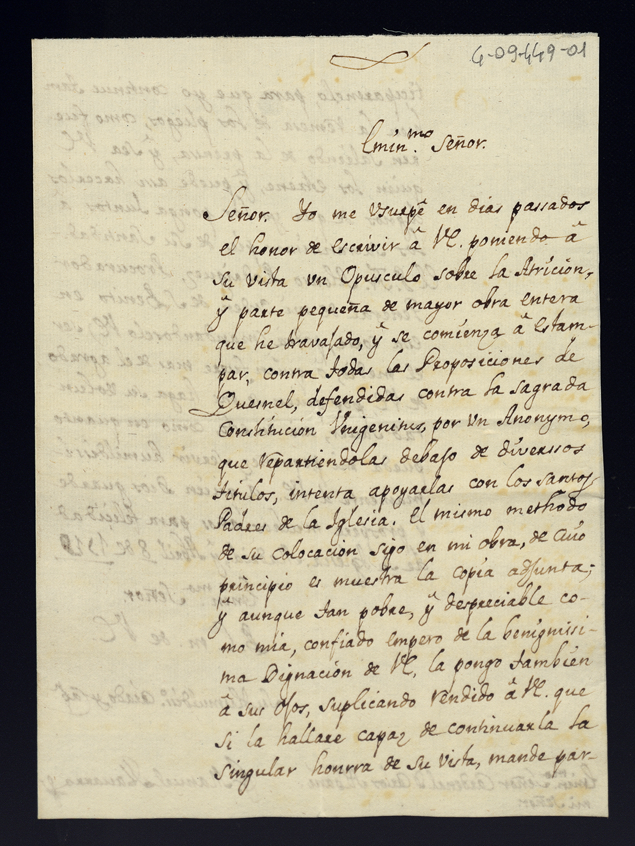 4-09-449-01
Emin.mo Señor.
Señor. Yo me usurpè en dias passados
el honor de escrivir â VE. poniendo â
su vista un Opusculo sobre la Atricion,
ÿ parte pequeña de mayor obra entera
que he travajado, ÿ se comienza â estam-
par, contra todas las Proposiciones de
Quesnel, defendidas contra la sagrada
Constitución Unigenitus, por un Anonymo,
que repartiendolas debajo de diverssos
titulos, intenta apoyarlas con los santos
Padres de la Iglesia. El mismo methodo
de su colocacion sigo en mi obra, de cuio
principio es muestra la copia adjunta;
ÿ aunque tan pobre, ÿ despreciable co-
mo mia, confiado empero de la benignissi-
ma Dignación de VE. la pongo tambien
â sus Ojos, suplicando rendido â VE. que
si la hallare capaz de continuarla la
singular honrra de su vista, mande par-